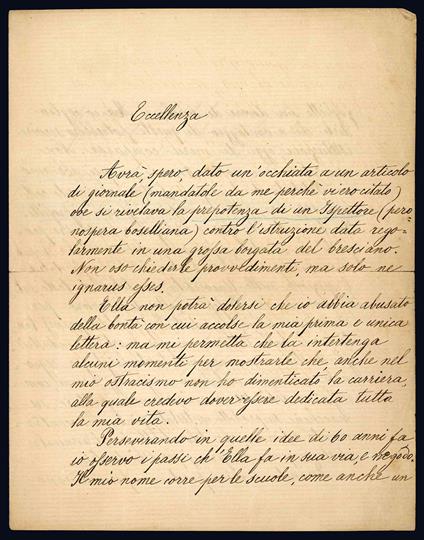 Eccellenza
Avrà, spero, dato un'occhiata a un articolo
di giornale (mandatole da me perchè vi ero citato)
ove si rivelava la prepotenza di un Ispettore (pero-
nospera boselliana) contro l'istruzione data rego-
larmente in una grossa borgata del bresciano.
Non oso chiederle provvedimenti, ma solo ne
ignarus esses.
Ella non potrà dolersi che io abbia abusato
della bontà con cui accolse la mia prima e unica
lettera: ma mi permetta che la intertenga
alcuni momenti per mostrarle che, anche nel
mio ostracismo non ho dimenticato la carriera,
alla quale credevo dover essere dedicata tutta
la mia vita.
Perseverando in quelle idee di 60 anni fa
io osservo i passi ch'Ella fa in sua via, e ne godo.
Il mio nome corre per le scuole, come anche un